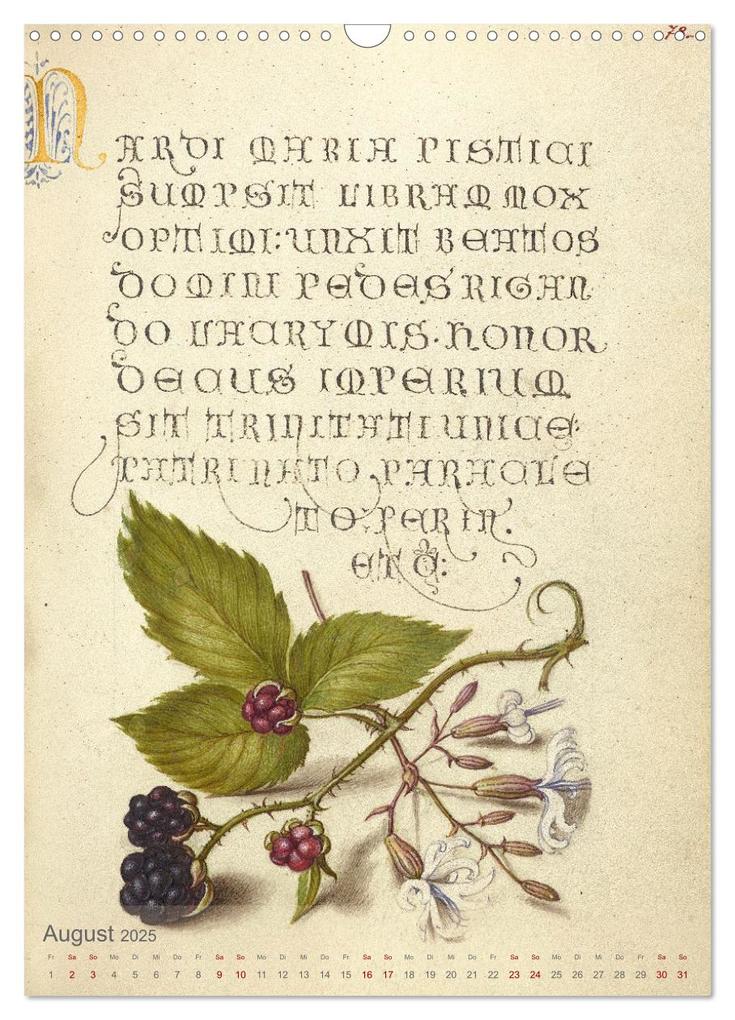 78.
NARDI MARIA PISTICI
SUMPSIT LIBRAM MOX
OPTIMI: UNXIT BEATOS
DOMINI PEDES RIGAN
DO LACRYMIS. HONOR
DECUS IMPERIUM
SIT TRINITATI UNICE:
PATRI NATO, PARACLE
TO: PER IN.
ET C:
August 2025
Fr Sa So Mo Di Mi Do Fr Sa So Mo Di Mi Do Fr Sa So Mo Di Mi Do Fr Sa So Mo Di Mi Do Fr Sa So
1 2 3 4 5 6 7 8 9 10 11 12 13 14 15 16 17 18 19 20 21 22 23 24 25 26 27 28 29 30 31